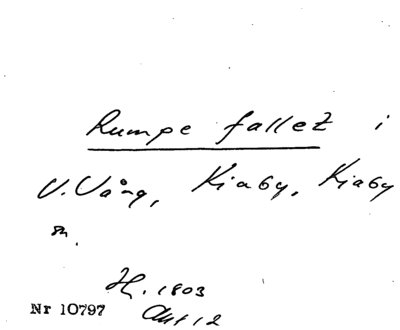 Rumpe fallet i
V. Vång, Kiaby, Kiaby
sn.
H. 1803
Akt 12
Nr 10797